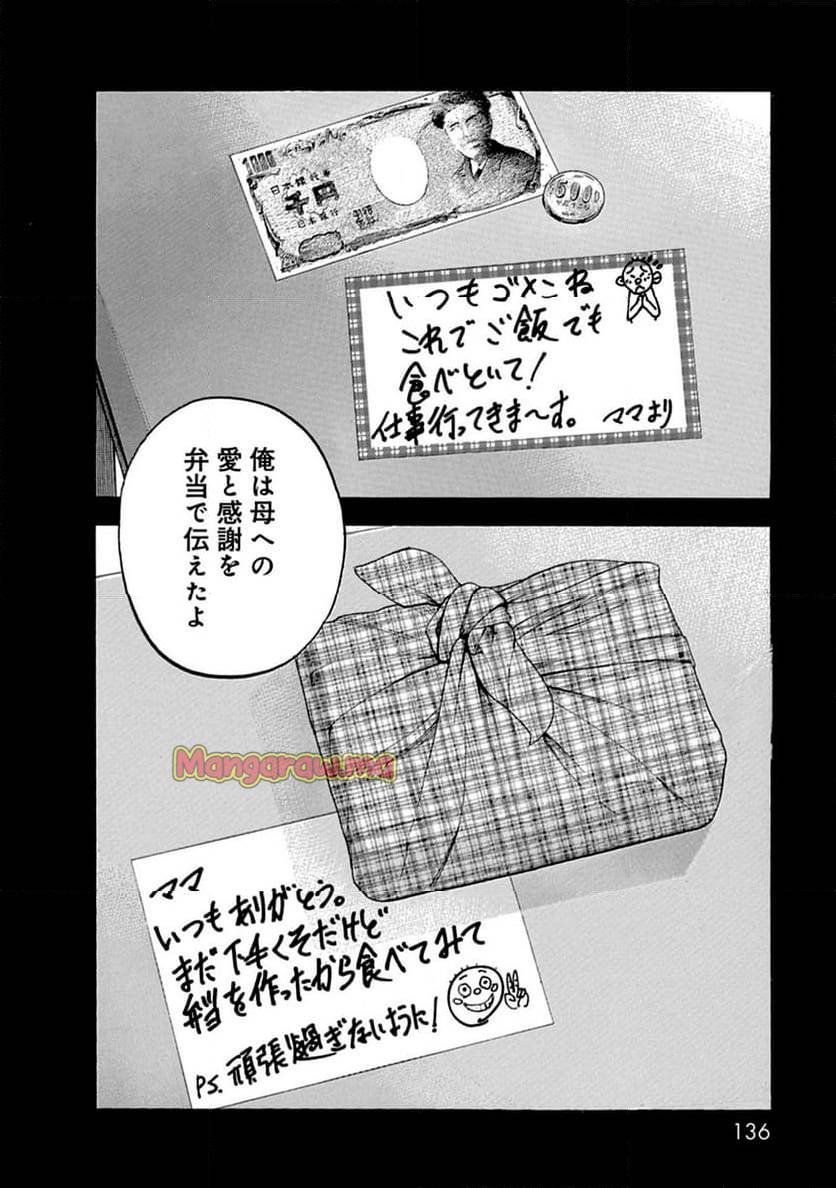 1000
日本銀行券
千円
日本銀行
500
いつもゴメンね
これでご飯でも
食べといて!
仕事行ってきま〜す。 ママより
俺は母への
愛と感謝を
弁当で伝えたよ
Mangaraw.ma
ママ
いつもありがとう。
まだ下手くそだけど
弁当を作ったから食べてみて
PS. 頑張り過ぎないように!
136